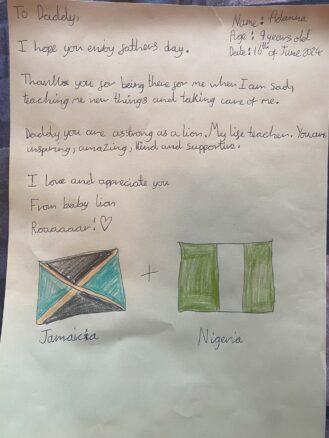 To Daddy,
Name: Adanna
Age: 9 years old
Date: 16th of June 2024
I hope you enjoy fathers day.
Thankyou you for being there for me when I am sad,
teaching me new things and taking care of me.
Daddy you are as strong as a lion. My life teacher. You are
inspiring, amazing, kind and supportive.
I love and appreciate you
From baby lion
Roaaaaar! ♡
+
Jamaica
Nigeria